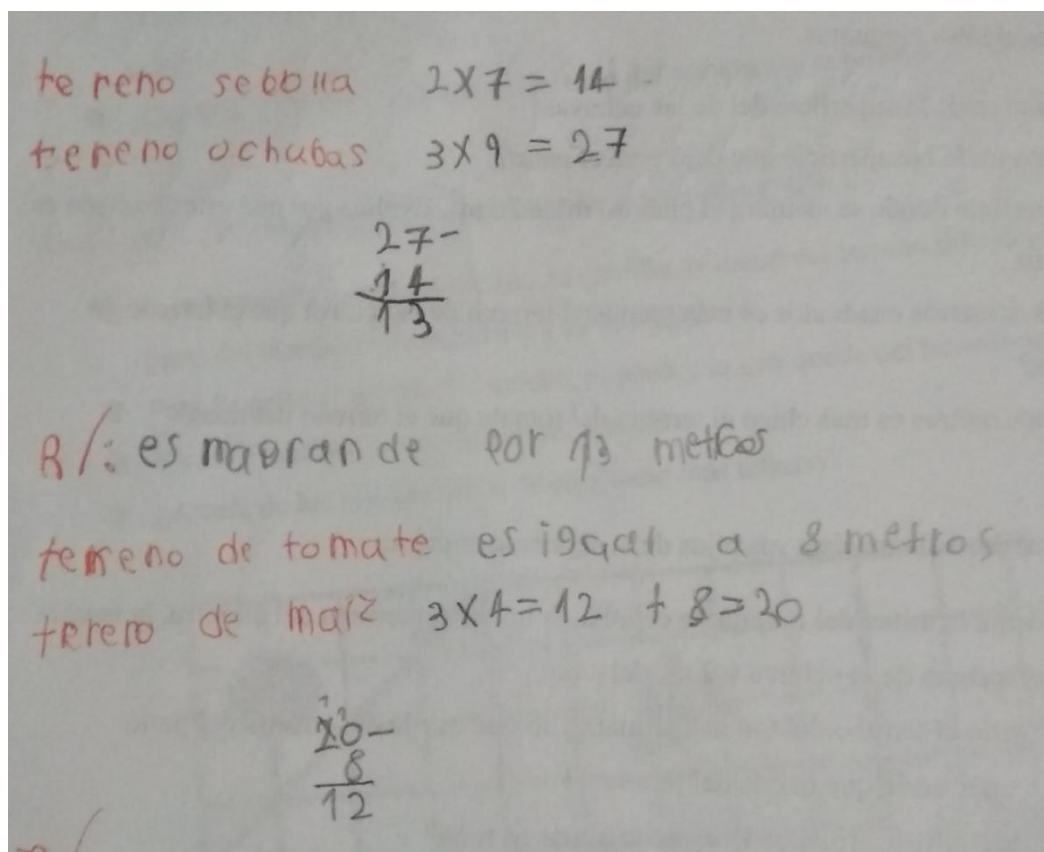 tereno sebolla 2x7=14
tereno ochubas 3x9=27
27-
14
13
R/: es magrande por 13 metros
terreno de tomate es igual a 8 metros
terero de maiz 3x4=12 + 8=20
20-
8
12